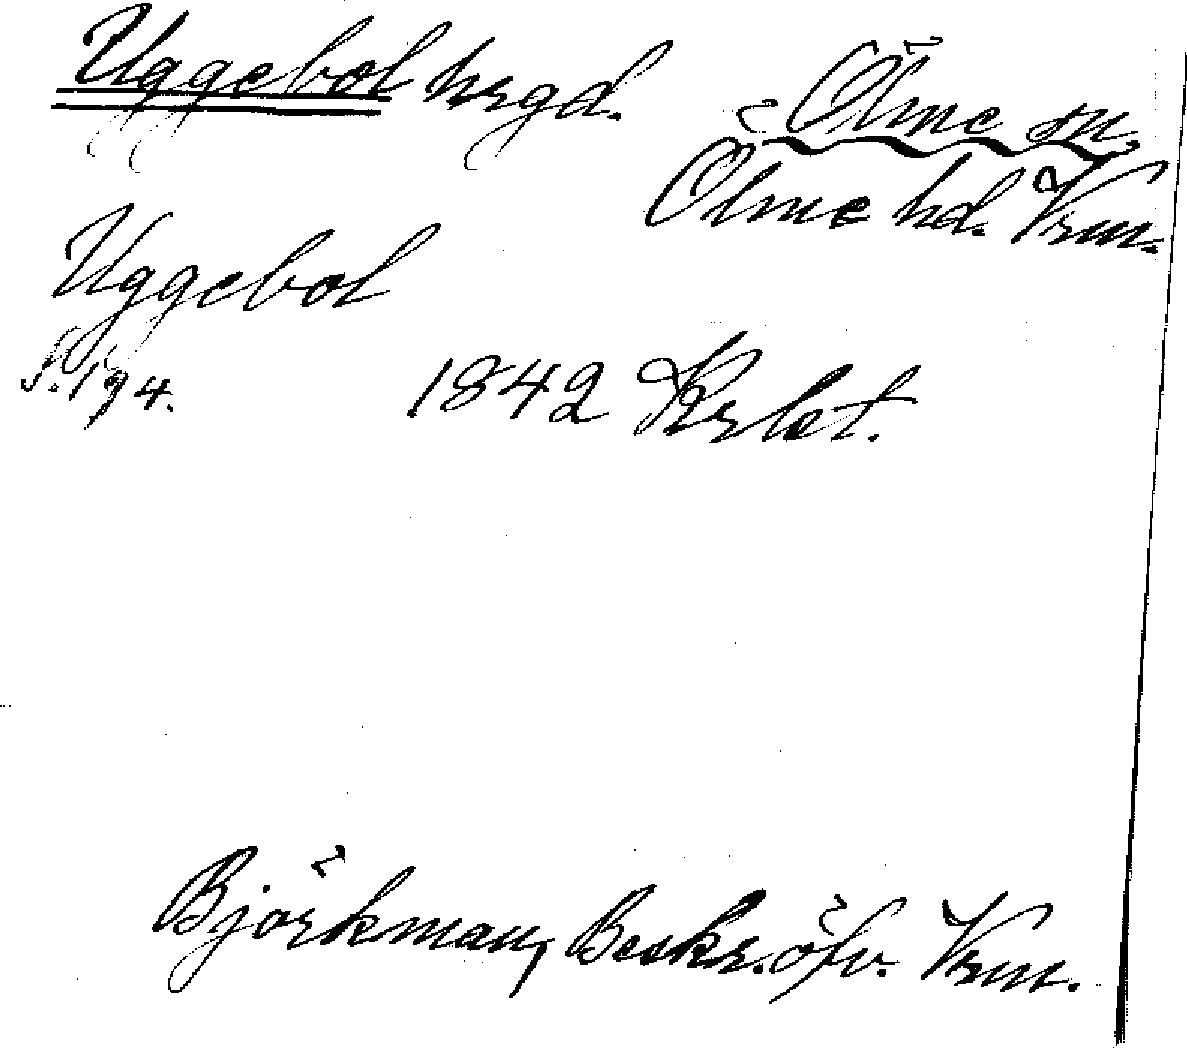 Uggebol hrgd.
Ölme sn.
Ölme hd. Vrm.
Uggebol
S. 194.
1842 Krlet.
Björkman, Beskr. öfv. Vrm.